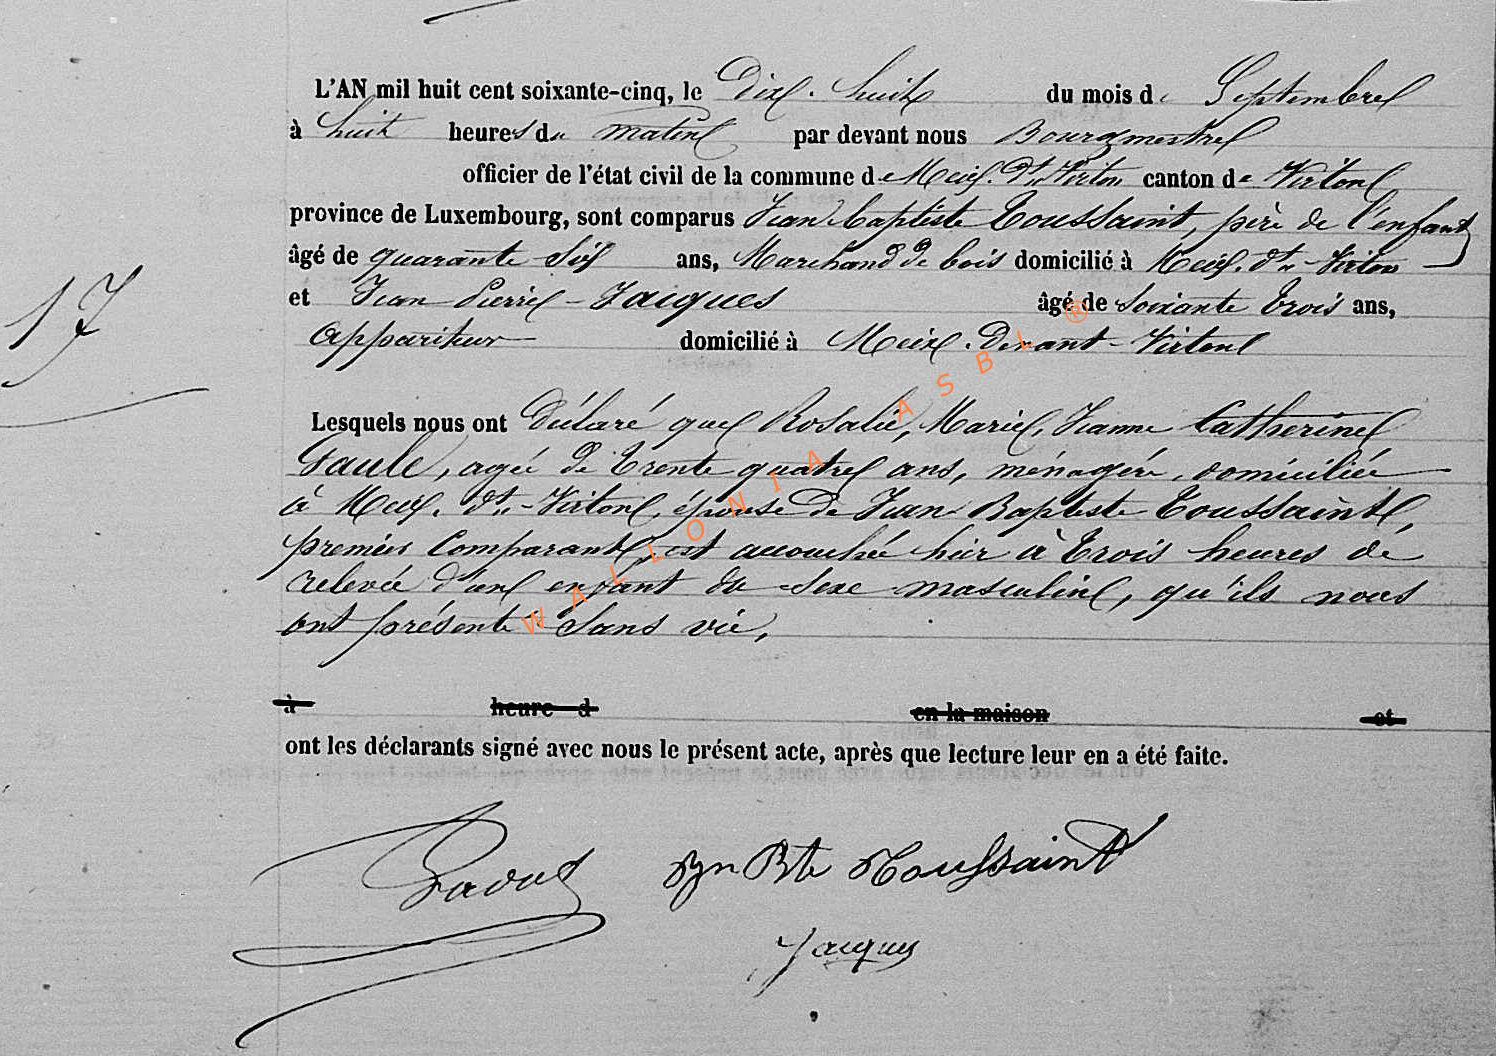 L'AN mil huit cent soixante-cinq, le Dix-huit du mois de Septembre
à huit heures du matin par devant nous Bourgmestre
officier de l'état civil de la commune de Meix-dt-Virton canton de Virton
province de Luxembourg, sont comparus Jean baptiste Toussaint, père de l'enfant
âgé de quarante six ans, Marchand de bois domicilié à Meix-dt-Virton
17
et Jean Pierre Jacques âgé de soixante trois ans,
appariteur domicilié à Meix-Devant-Virton
Lesquels nous ont déclaré que Rosalie, Marie, Jeanne Catherine
Gaule, agée de trente quatre ans, ménagère, domiciliée
à Meix-dt-Virton, épouse de Jean Baptiste Toussaint,
premier Comparant, est accouchée hier à trois heures de
relevée d'un enfant du sexe masculin, qu'ils nous
ont présenté sans vie,
à heure d en la maison et
ont les déclarants signé avec nous le présent acte, après que lecture leur en a été faite.
Jn Bte Toussaint
Jacques
WALLONIA ASBL ®